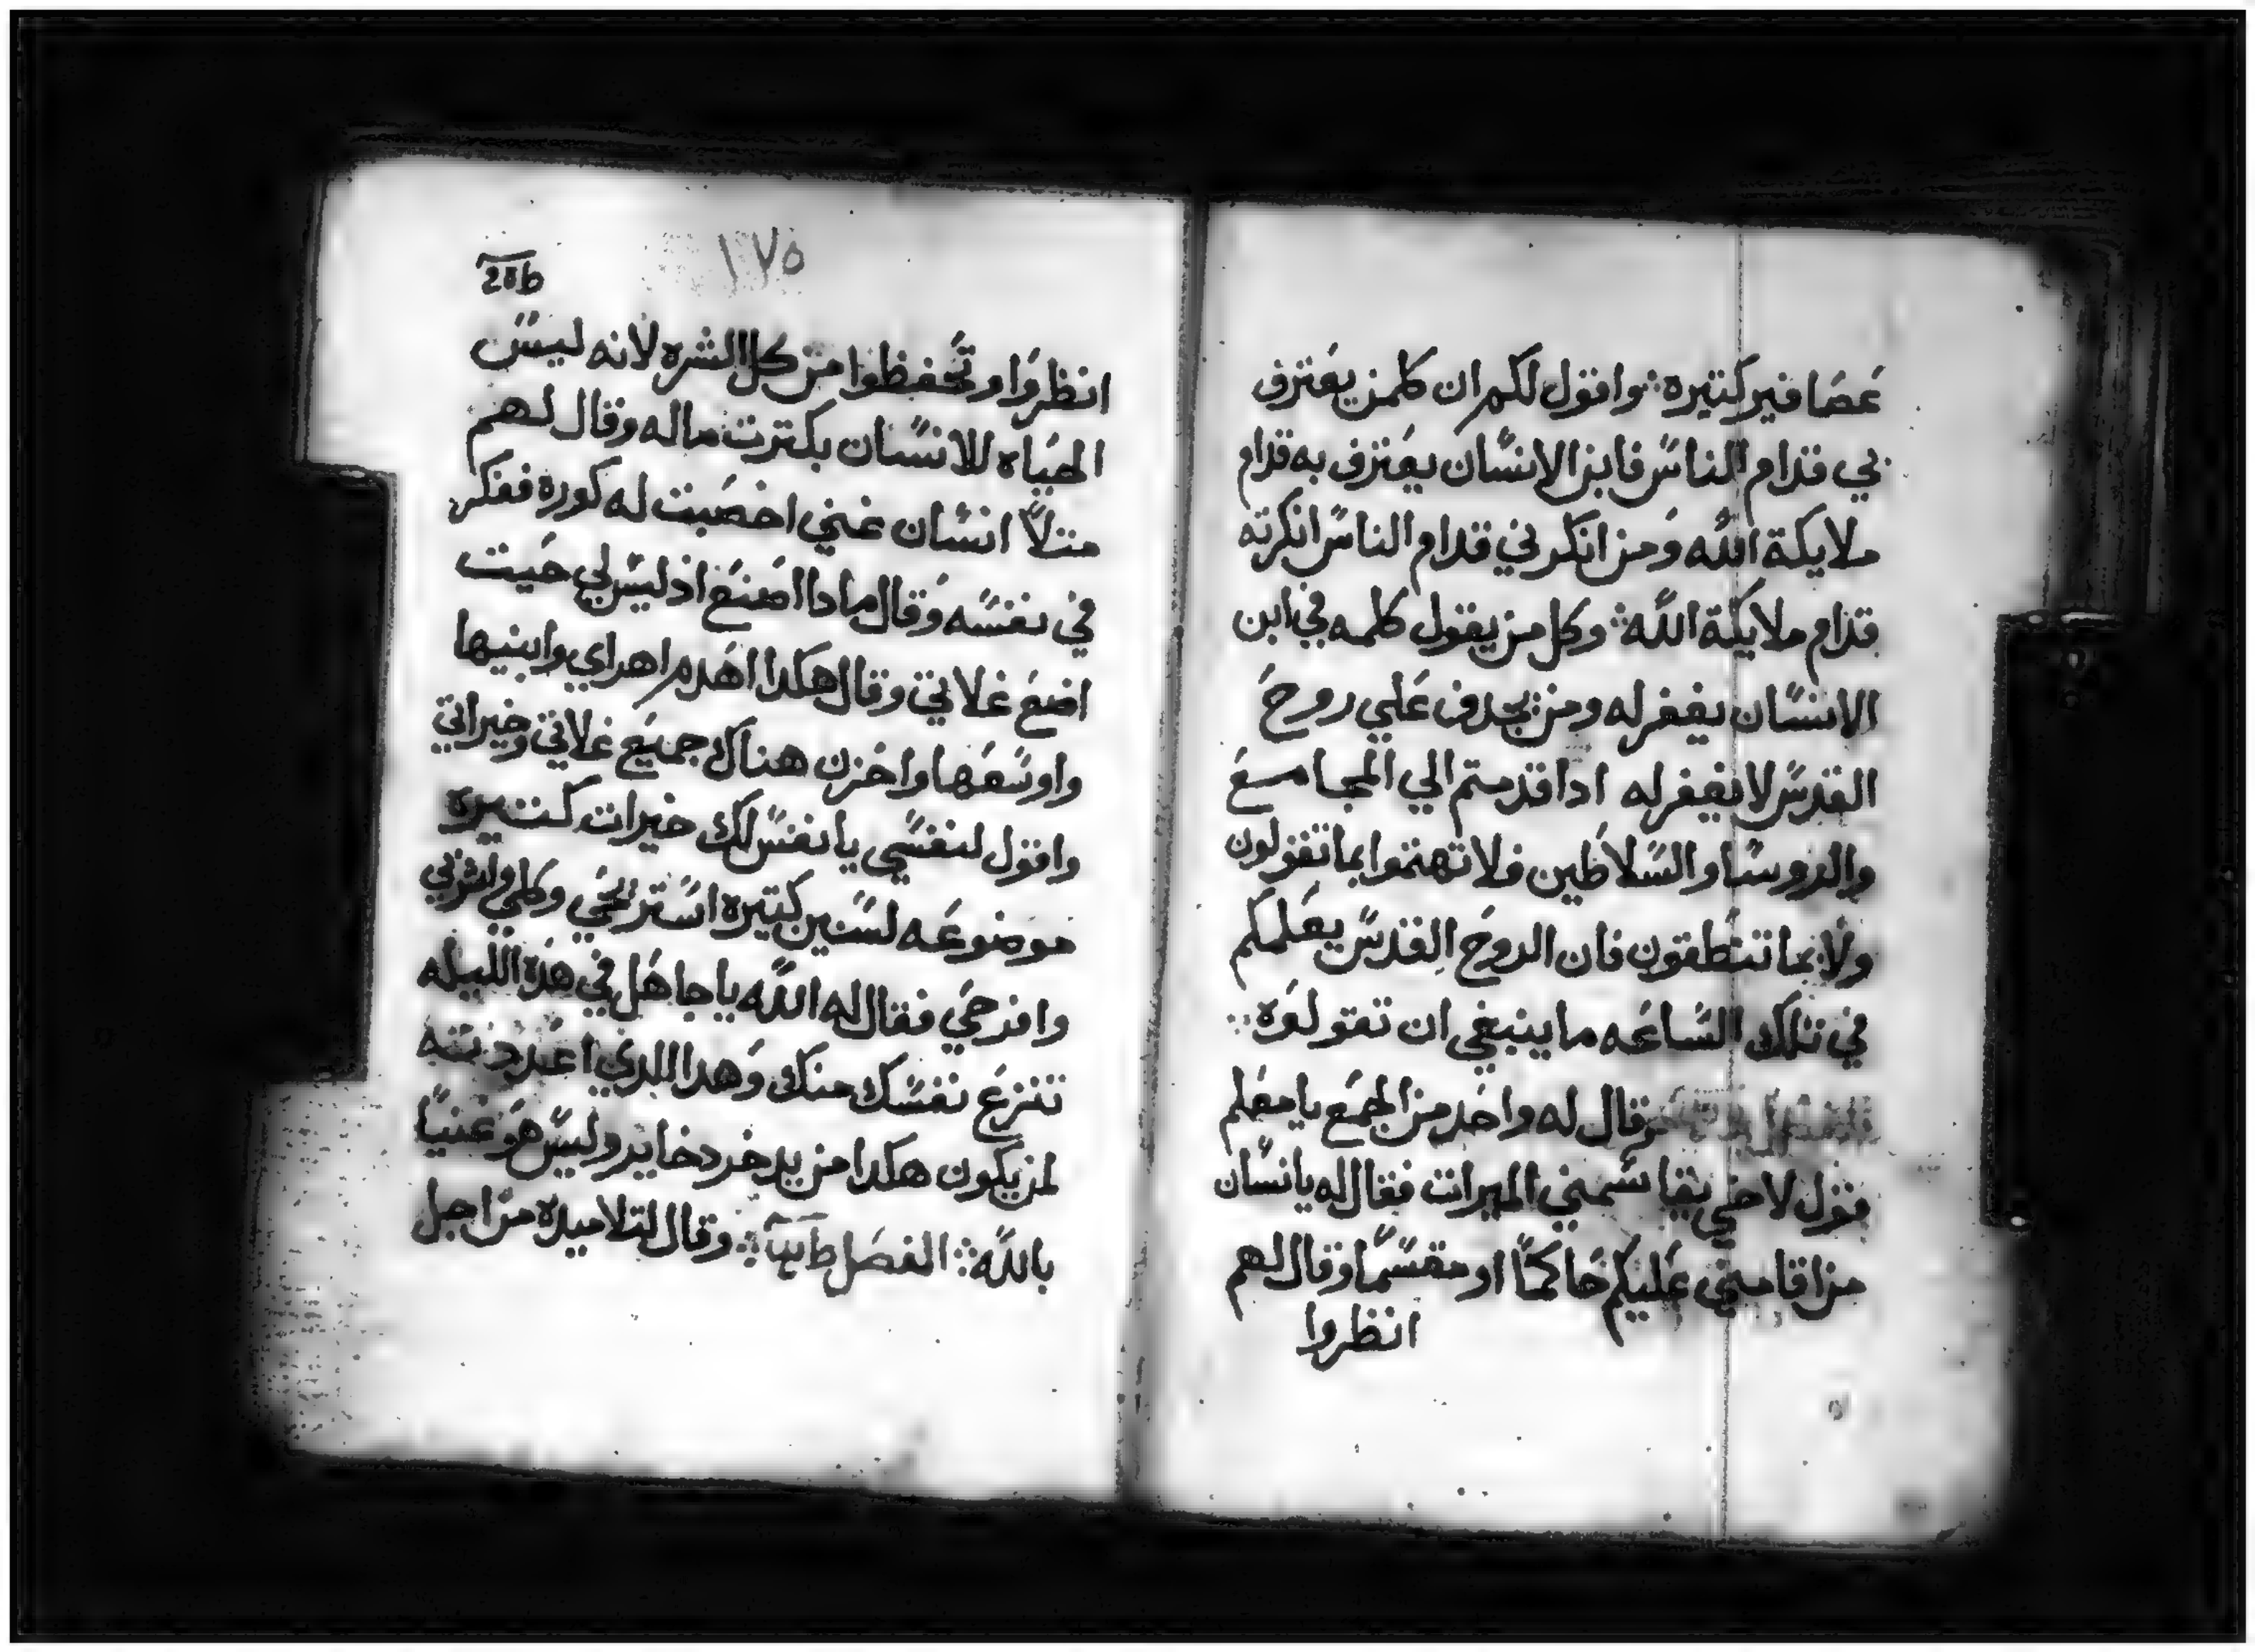 عصافير كتيره ⁘ واقول لكم ان كلمن يعترف
بي قدام الناس فابن الانسان يعترف به قدام
ملايكة الله ومن انكرني قدام الناس انكرته
قدام ملايكة الله ⁘ وكل من يقول كلمه في ابن
الانسان يغفر له ومن يجدف علي روح
القدس لا يغفر له ادا قدمتم الي المجامع
والروسا والسلاطين فلا تهتموا بما تقولون
ولا بما تنطقون فان الروح القدس يعلمكم
في تلك الساعه ما ينبغي ان تقولوه ⁘
وقال له واحد من الجمع يا معلم
قول لاخي يقاسمني الميرات فقال له يا نسان
من اقامني عليكم حاكمًا او مقسمًا وقال لهم
انظروا
١٧٥
انظروا وتحفظوا من كل الشره لانه ليس
الحياه للانسان بكترت ماله وقال لهم
متلاً انسان غني اخصبت له كورة ففكر
في نفسه وقال مادا اصنع اذ ليس لي حيت
اضع غلاتي وقال هكدا اهدم اهراي وابنيها
واوسعها واخزن هناك جميع غلاتي وخيراتي
واقول لنفسي يا نفس لك خيرات كتيره
موضوعه لسنين كتيره استريحي وكلي واشربي
وافرحي فقال له الله يا جاهل في هذه الليله
تنزع نفسك منك وهدا الدي اعددته
لمن يكون هكدا من يدخر دخاير وليس هو غنيًا
بالله ⁘ الفصل ⁘ وقال لتلاميده من اجل